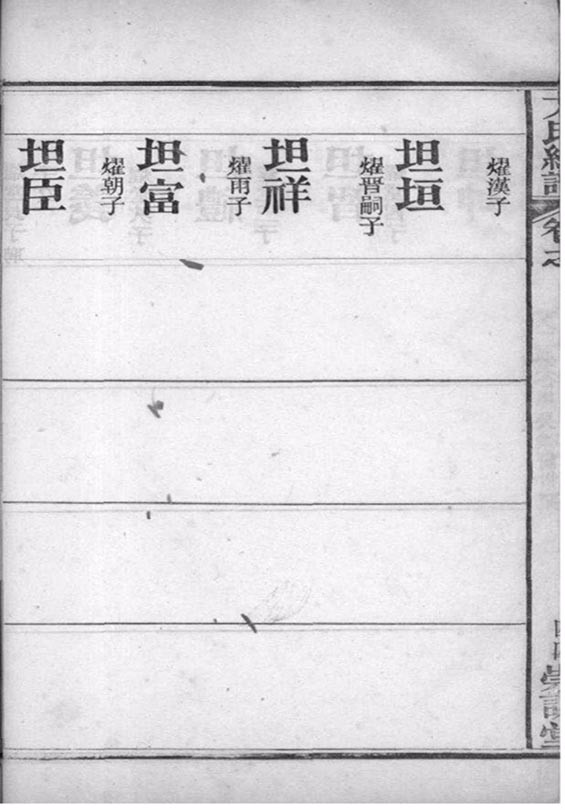 燿漢子
坦垣
燿晉嗣子
坦祥
燿雨子
坦富
燿朝子
坦臣